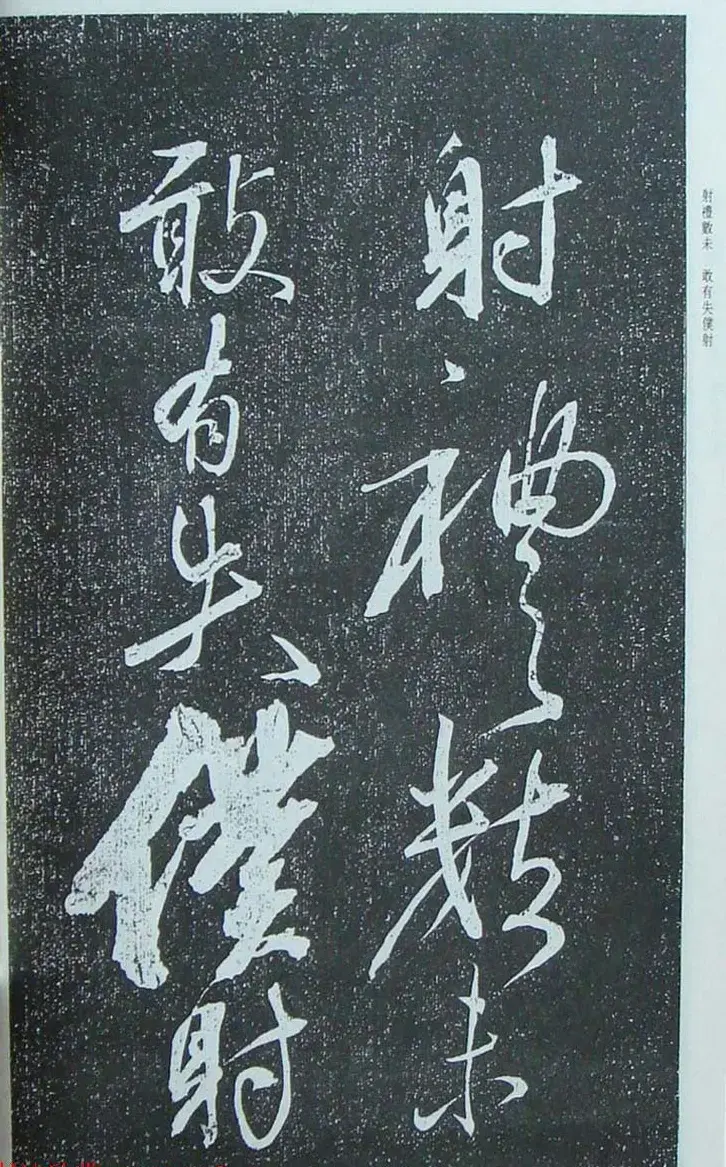 射禮數未
敢有失僕射
射禮數未 敢有失僕射